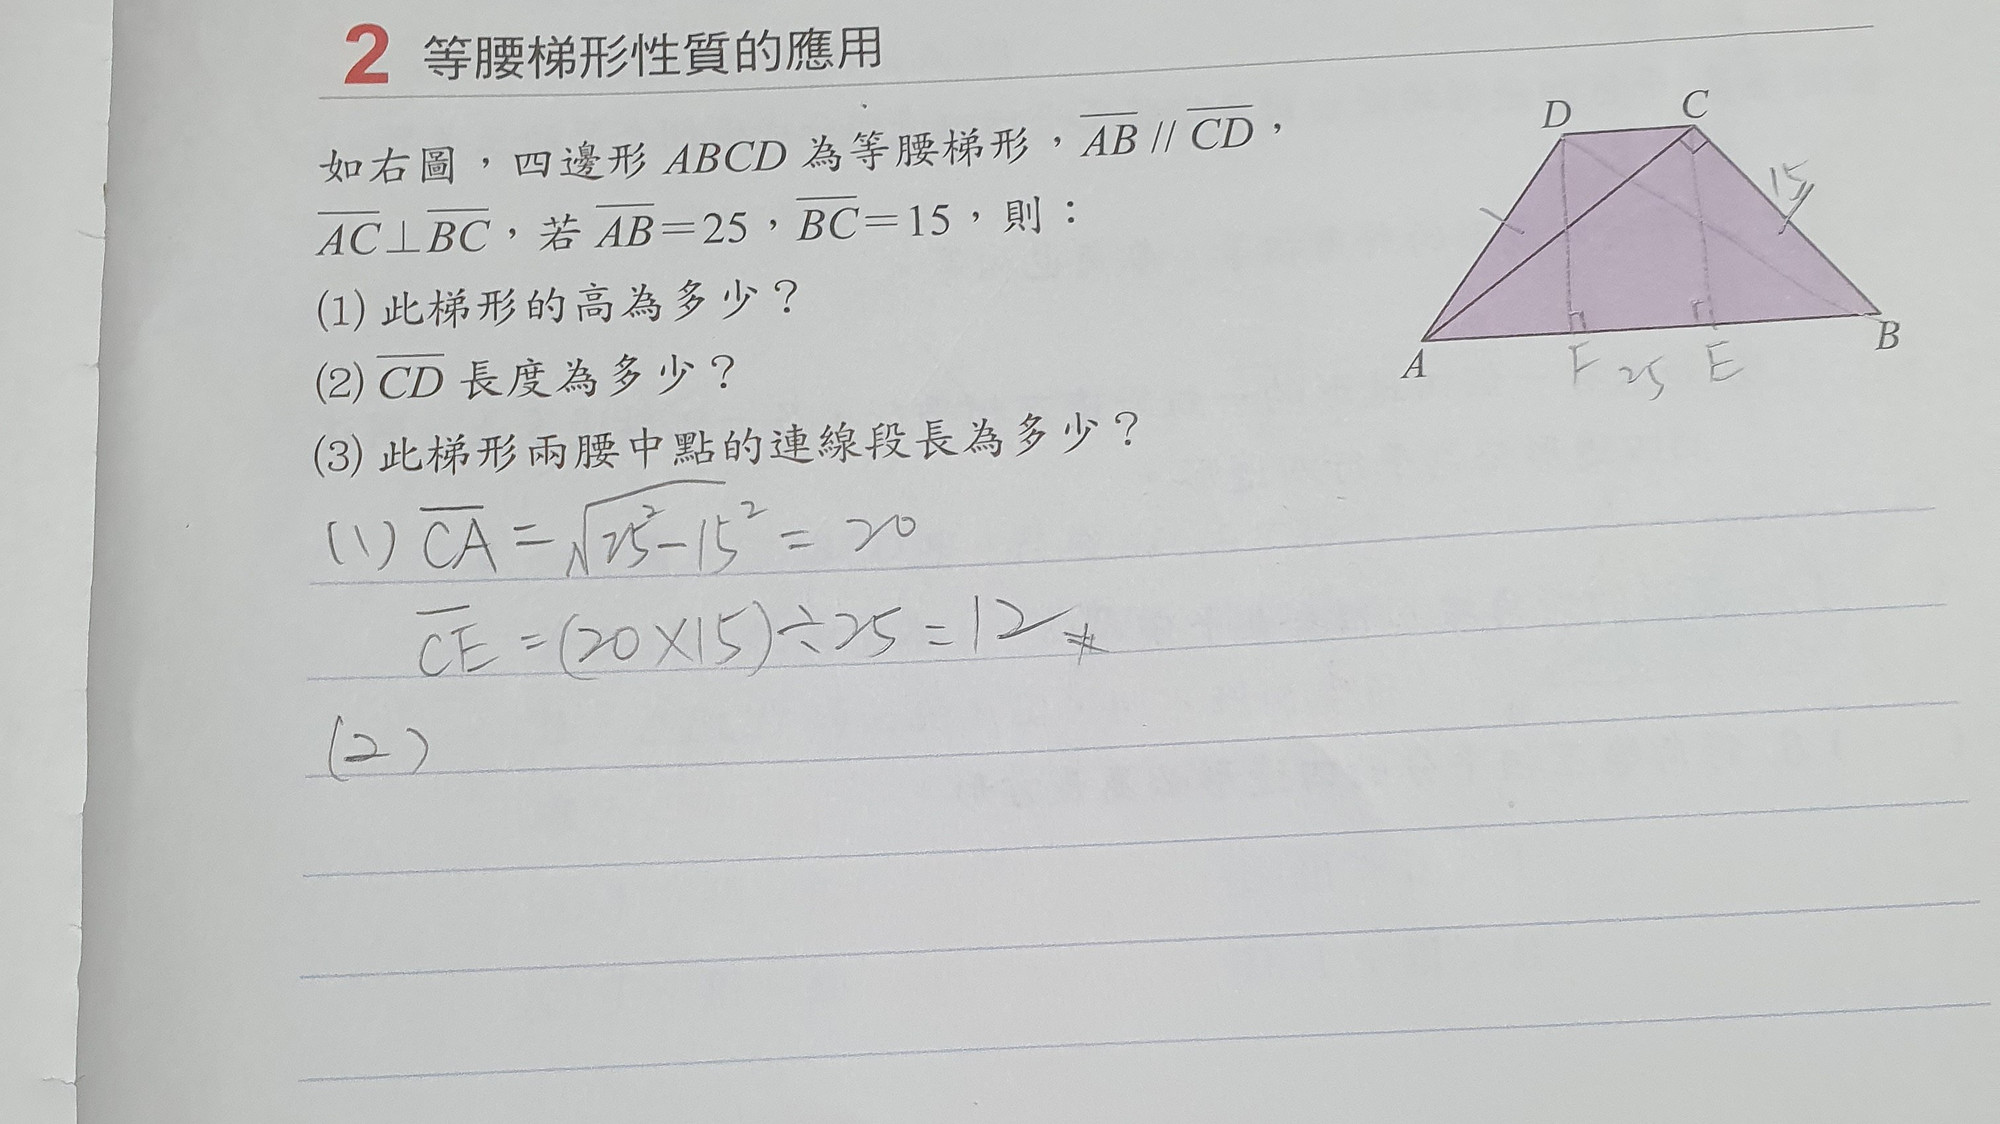 2 等腰梯形性質的應用
如右圖，四邊形 ABCD 為等腰梯形，AB // CD，
AC⊥BC，若 AB=25，BC=15，則：
(1) 此梯形的高為多少？
(2) CD 長度為多少？
(3) 此梯形兩腰中點的連線段長為多少？
D C
15
A B
F 25 E
(1) CA = √25²-15² = 20
CE = (20×15)÷25 = 12
(2)